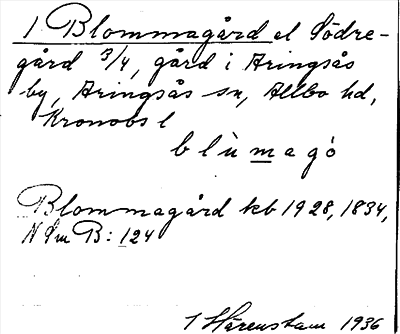 1 Blommagård el Södre-
gård 3/4, gård i Aringsås
by, Aringsås sn, Allbo hd,
Kronobs l
blùmagó
Blommagård kb 1928, 1834,
N Sm B: 124
1 Härenstam 1936